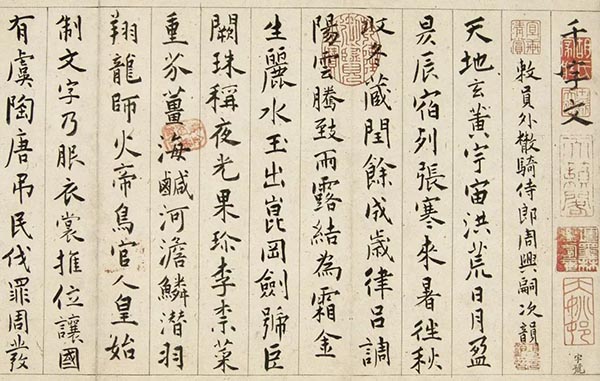 千字文
敕員外散騎侍郎周興嗣次韻
天地玄黃宇宙洪荒日月盈
昃辰宿列張寒來暑徃秋
收冬藏閏餘成歲律呂調
陽雲騰致雨露結為霜金
生麗水玉出崑岡劍號巨
闕珠稱夜光果珍李柰菜
重芥薑海鹹河澹鱗潛羽
翔龍師火帝鳥官人皇始
制文字乃服衣裳推位讓國
有虞陶唐吊民伐罪周發